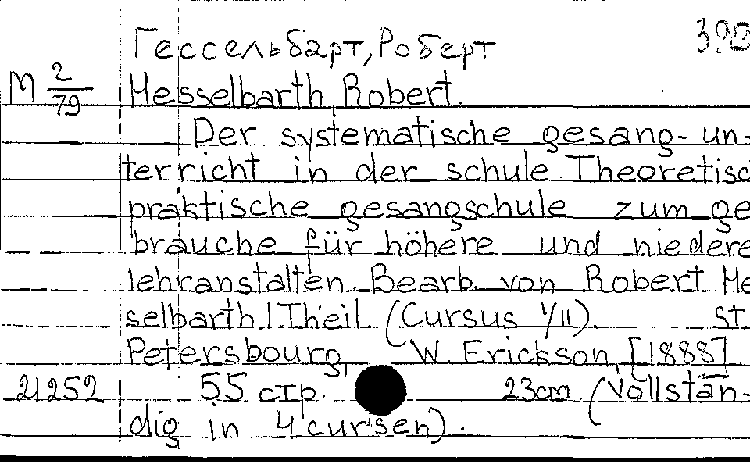 Гессельбарт, Роберт 390
М 2/79 Hesselbarth Robert.
Der systematische gesang- un-
terricht in der schule Theoretisc
praktische gesangschule zum ge
brauche für höhere und niedere
lehranstalten Bearb. von Robert He
selbarth. I Theil (Cursus I/II). St.
Petersbourg, W. Erickson, [1888]
21252 55 стр. 23cm (Vollstän-
dig in 4 cursen).